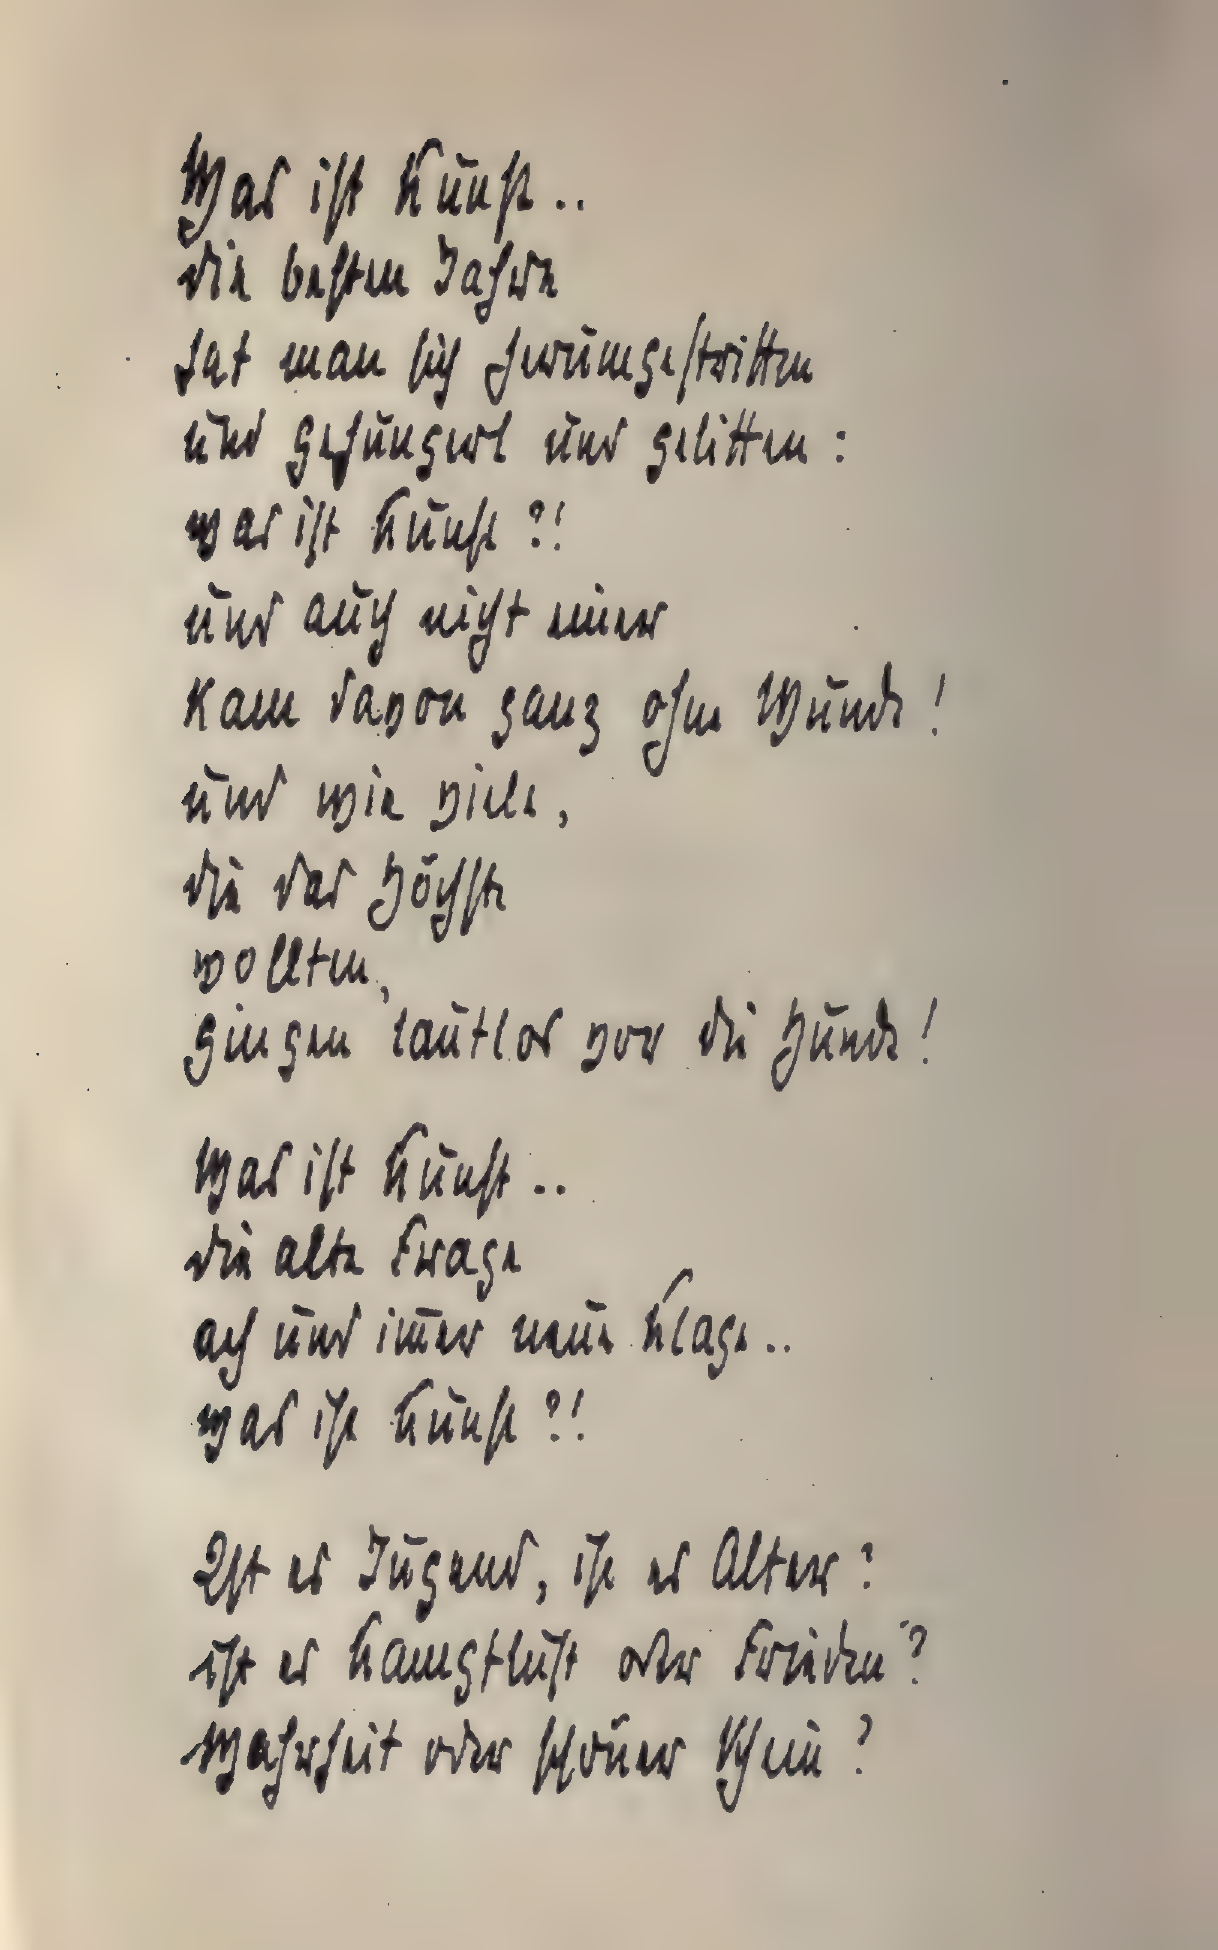 Was ist Kunst ..
die besten Jahre
hat man sich herumgestritten
und gehungert und gelitten :
was ist Kunst ?!
und auch nicht einer
kam davon ganz ohne Wunde !
und wie viele,
die das Höchste
wollten,
gingen lautlos vor die Hunde !
Was ist Kunst ..
die alte Frage
ach und im̅er neue Klage ..
was ist Kunst ?!
Ist es Jugend, ist es Alter ?
ist es Kampflust oder Frieden ?
Wahrheit oder schöner Schein ?